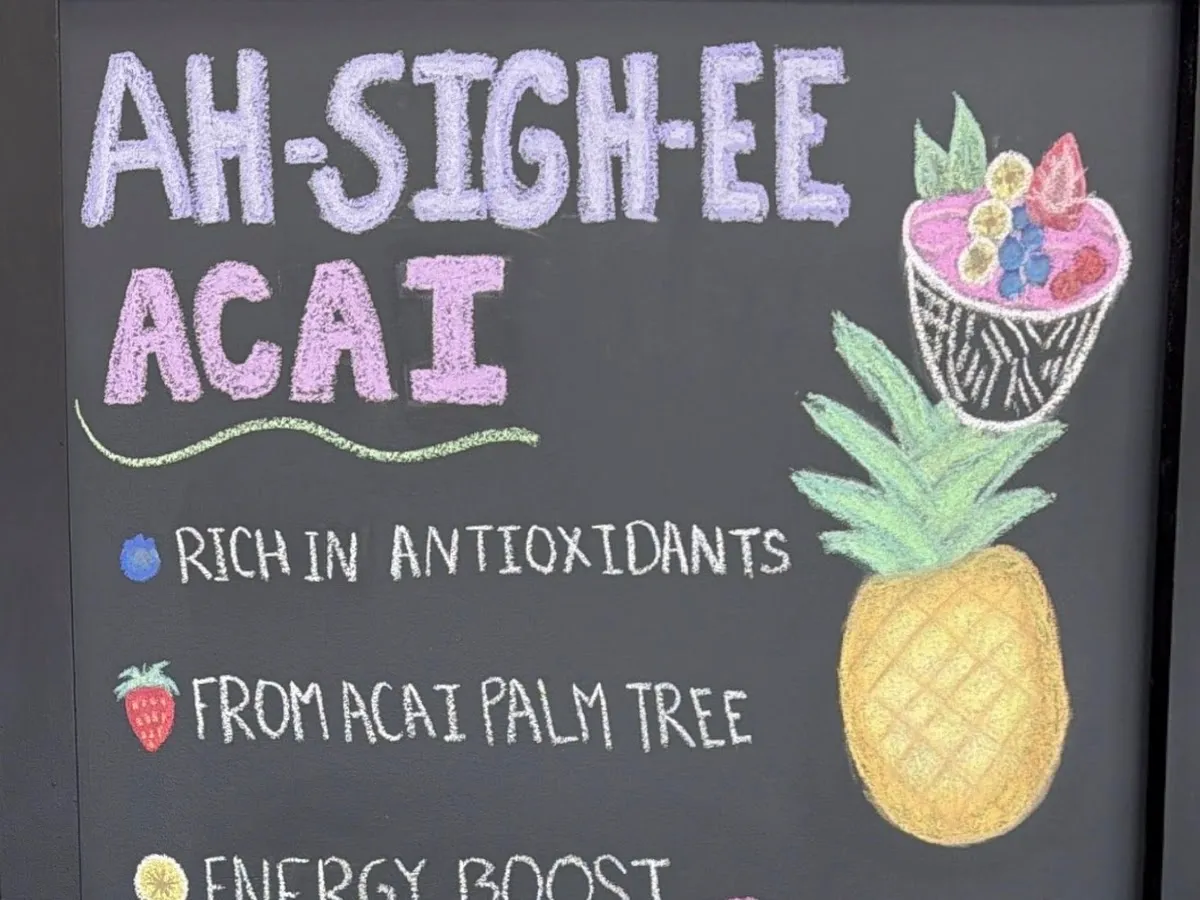 AH-SIGH-EE
ACAI
RICH IN ANTIOXIDANTS
FROM ACAI PALM TREE
ENERGY BOOST